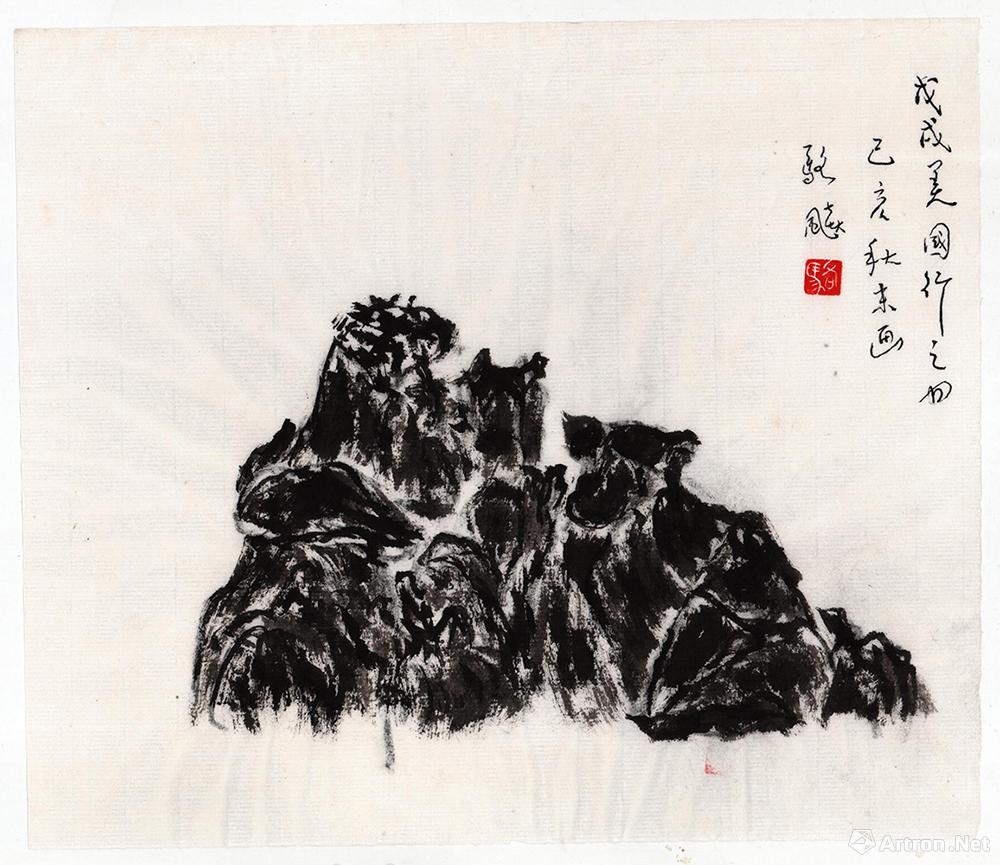 戊戌美國行之四
己亥秋末画
駱
駱
Artron.Net